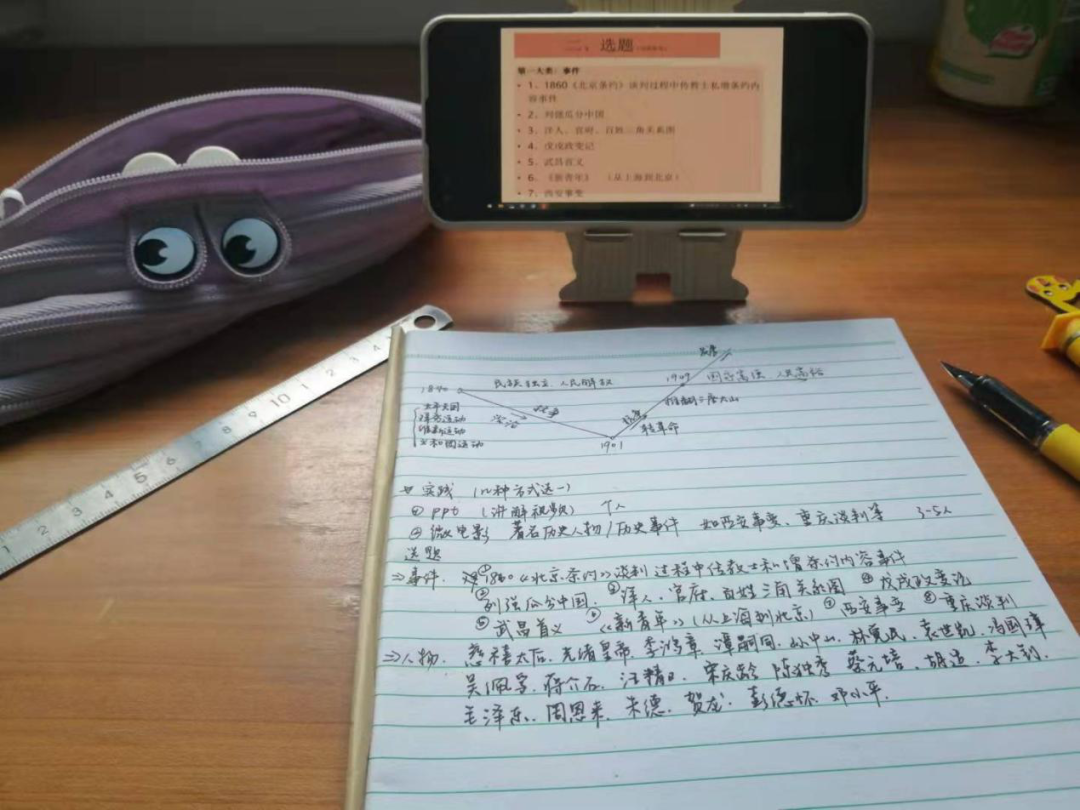 二、选题
第一大类：事件
• 1、1860《北京条约》谈判过程中传教士私增条约内
容事件
• 2、列强瓜分中国
• 3、洋人、官府、百姓三角关系图
• 4、戊戌政变记
• 5、武昌首义
• 6、《新青年》（从上海到北京）
• 7、西安事变
1840 民族独立 人民解放 1949 国家富强 人民富裕
太平天国
洋务运动
维新运动
义和团运动
1901
实践 (两种方式选一)
① ppt (讲解视频) 个人
② 微电影 著名历史人物/历史事件 如西安事变、重庆谈判等 3-5人
选题
=> 事件. ①1860《北京条约》谈判过程中传教士私增条约内容事件
② 列强瓜分中国. ③洋人、官府、百姓三角关系图 ④戊戌政变记
⑤ 武昌首义 ⑥《新青年》(从上海到北京) ⑦西安事变 ⑧重庆谈判
=> 人物. 慈禧太后、光绪皇帝、李鸿章、谭嗣同、孙中山、林觉民、袁世凯、冯国璋
吴佩孚、蒋介石、汪精卫、宋庆龄、陈独秀、蔡元培、胡适、李大钊、
毛泽东、周恩来、朱德、贺龙、彭德怀、邓小平.
1 2 3 4 5 6 7 8 9 10 1 2 3 4